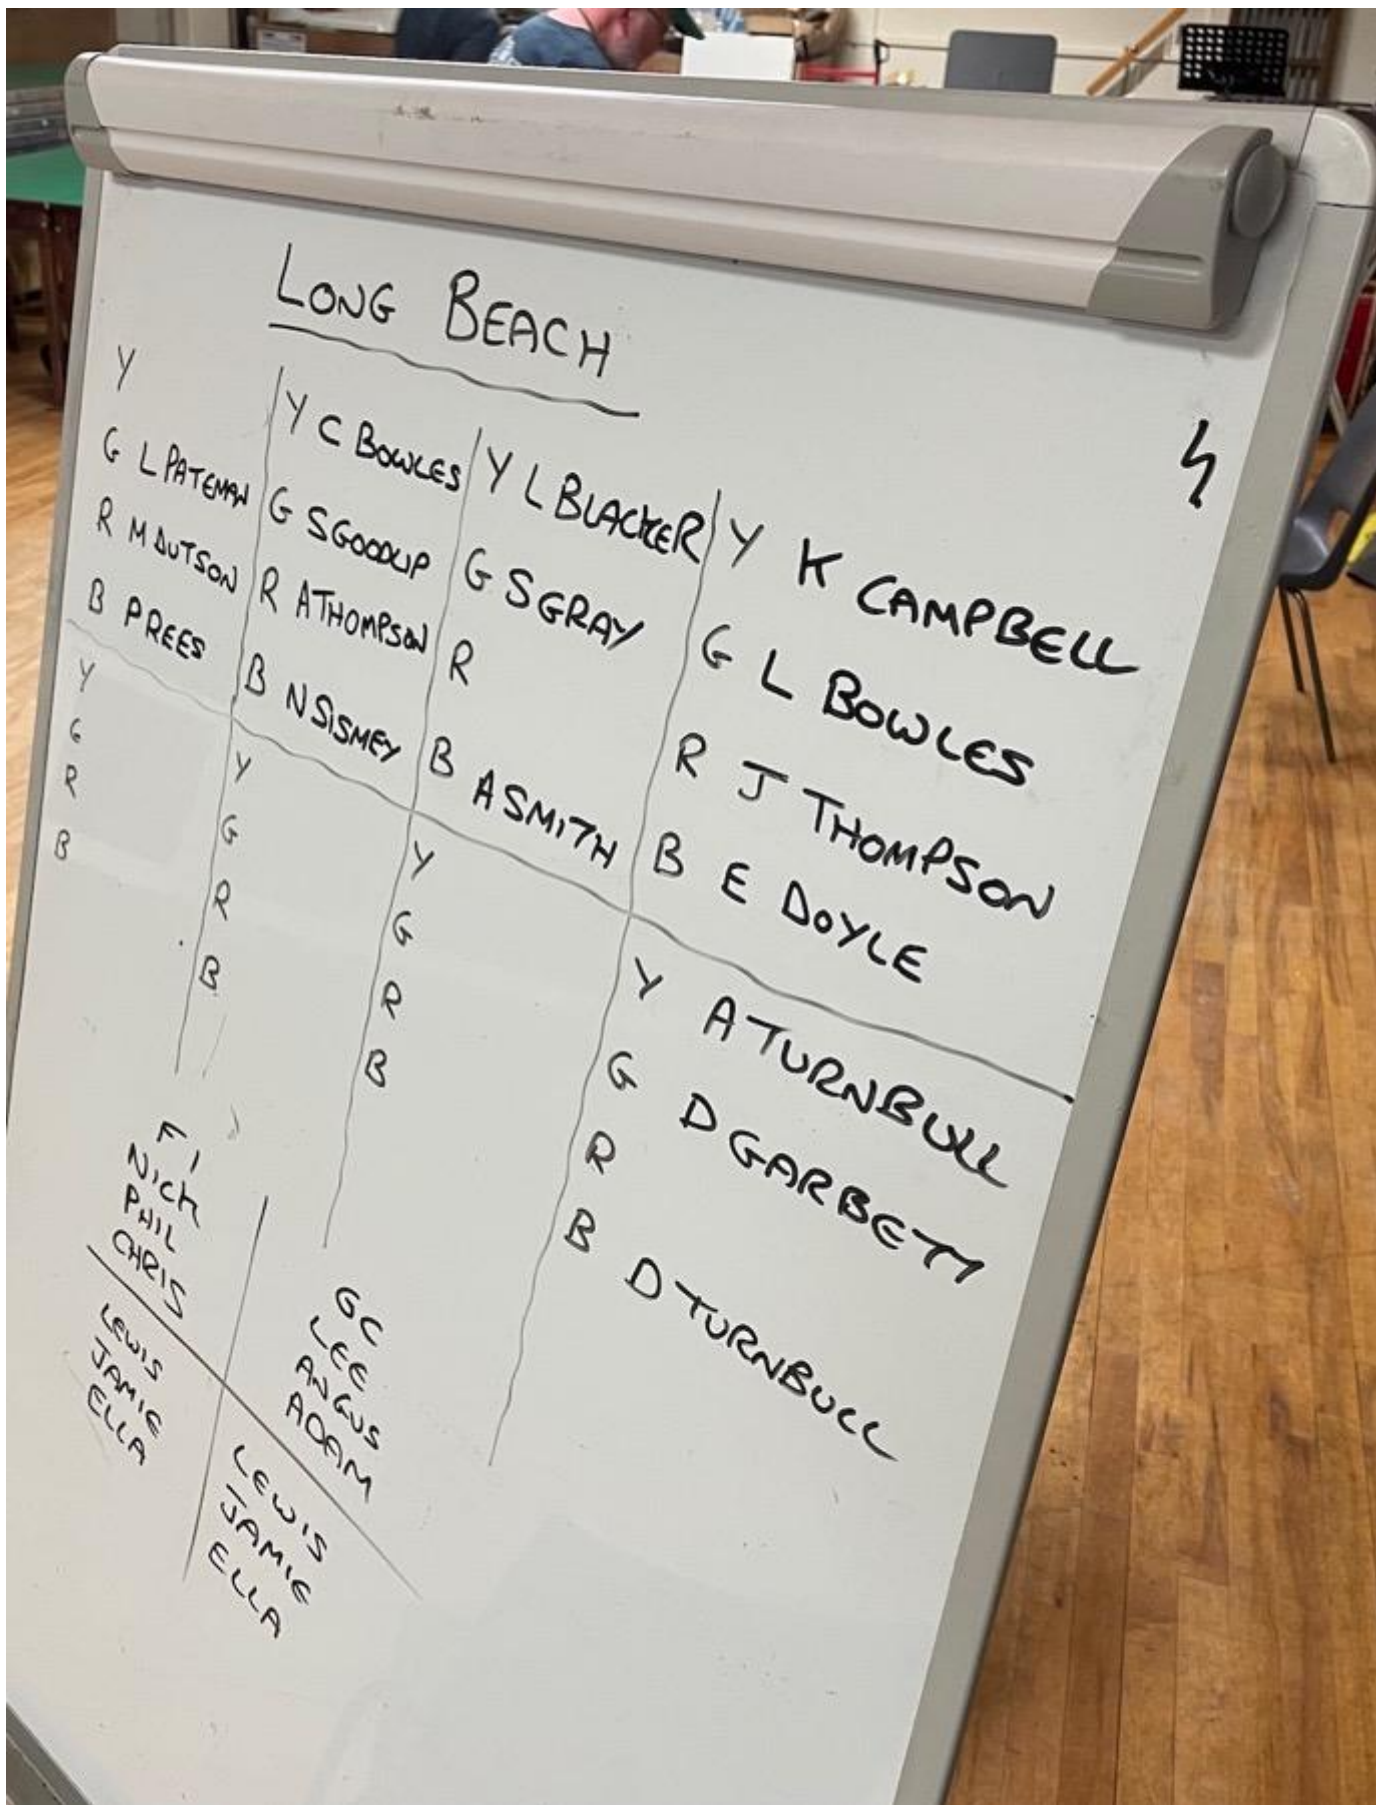 LONG BEACH
Y
G L PATEMAN
R M DUTSON
B P REES
Y C BOWLES
G S GOODLIP
R A THOMPSON
B N SISMEY
Y L BLACKER
G S GRAY
R
B A SMITH
Y K CAMPBELL
G L BOWLES
R J THOMPSON
B E DOYLE
Y
G
R
B
Y
G
R
B
Y
G
R
B
Y A TURNBULL
G D GARBETT
R
B D TURNBULL
F1
NICK
PHIL
CHRIS
LEWIS
JAMIE
ELLA
GC
LEE
ANGUS
ADAM
LEWIS
JAMIE
ELLA